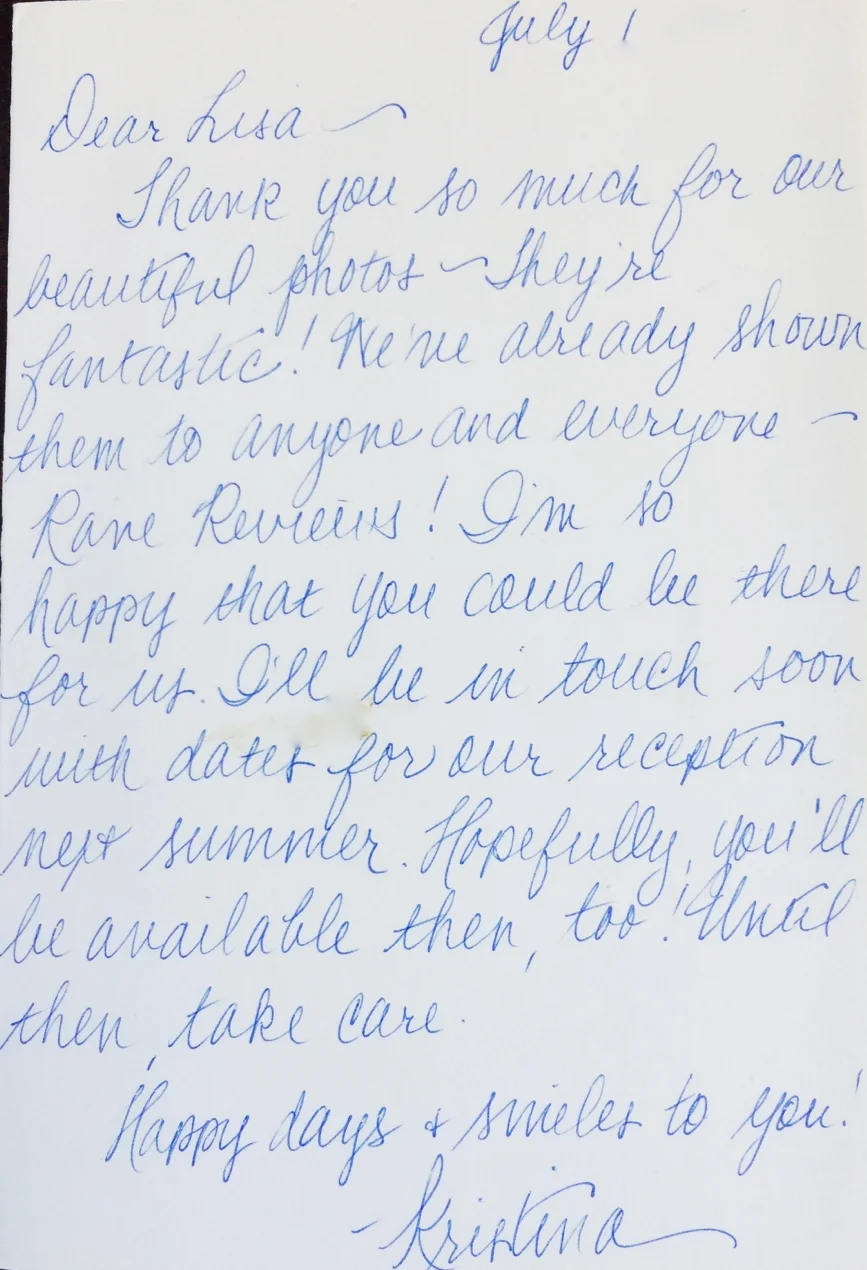 July 1
Dear Lisa ~
Thank you so much for our
beautiful photos ~ They're
fantastic! We've already shown
them to anyone and everyone ~
Rave Reviews! I'm so
happy that you could be there
for us. I'll be in touch soon
with dates for our reception
next summer. Hopefully, you'll
be available then, too! Until
then, take care.
Happy days + smiles to you!
- Kristina